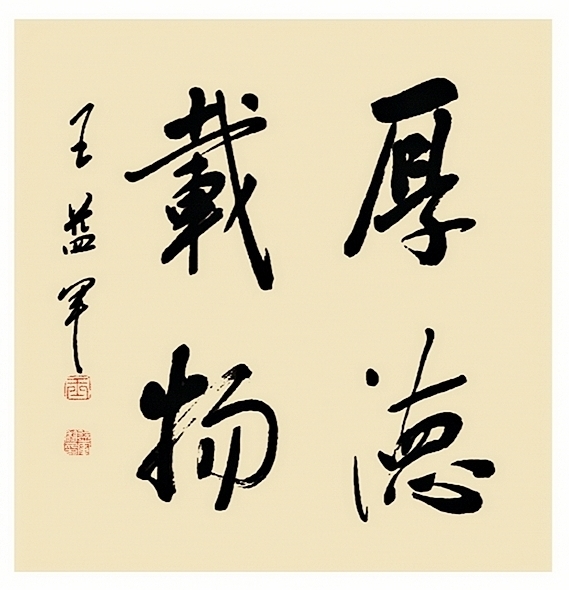 厚德
載物
王益军